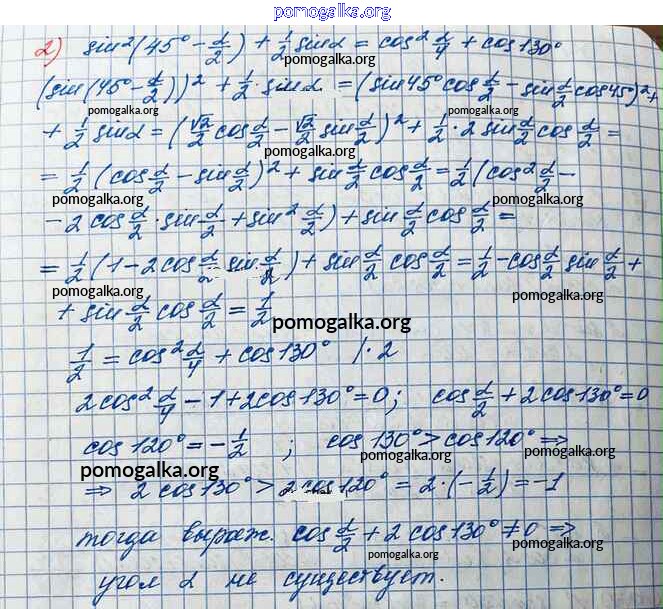 pomogalka.org
2) sin²(45° - α/2) + 1/2 sinα = cos² α/4 + cos130°
pomogalka.org
(sin(45° - α/2))² + 1/2 · sinα = (sin45° cos α/2 - sin α/2 cos45°)² +
pomogalka.org pomogalka.org
+ 1/2 sinα = (√2/2 cos α/2 - √2/2 sin α/2)² + 1/2 · 2 sin α/2 cos α/2 =
pomogalka.org
= 1/2 (cos α/2 - sin α/2)² + sin α/2 cos α/2 = 1/2 (cos² α/2 -
pomogalka.org pomogalka.org
- 2 cos α/2 · sin α/2 + sin² α/2) + sin α/2 cos α/2 =
= 1/2 (1 - 2 cos α/2 sin α/2) + sin α/2 cos α/2 = 1/2 - cos α/2 sin α/2 +
pomogalka.org pomogalka.org
+ sin α/2 cos α/2 = 1/2
pomogalka.org
1/2 = cos² α/4 + cos130° | · 2
2 cos² α/4 - 1 + 2 cos130° = 0; cos α/2 + 2 cos130° = 0
pomogalka.org
cos120° = - 1/2 ; cos130° > cos120° ⇒
pomogalka.org pomogalka.org
⇒ 2 cos130° > 2 cos120° = 2 · (- 1/2) = -1
pomogalka.org
тогда выраж. cos α/2 + 2 cos130° ≠ 0 ⇒
pomogalka.org pomogalka.org
угол α не существует.
pomogalka.org